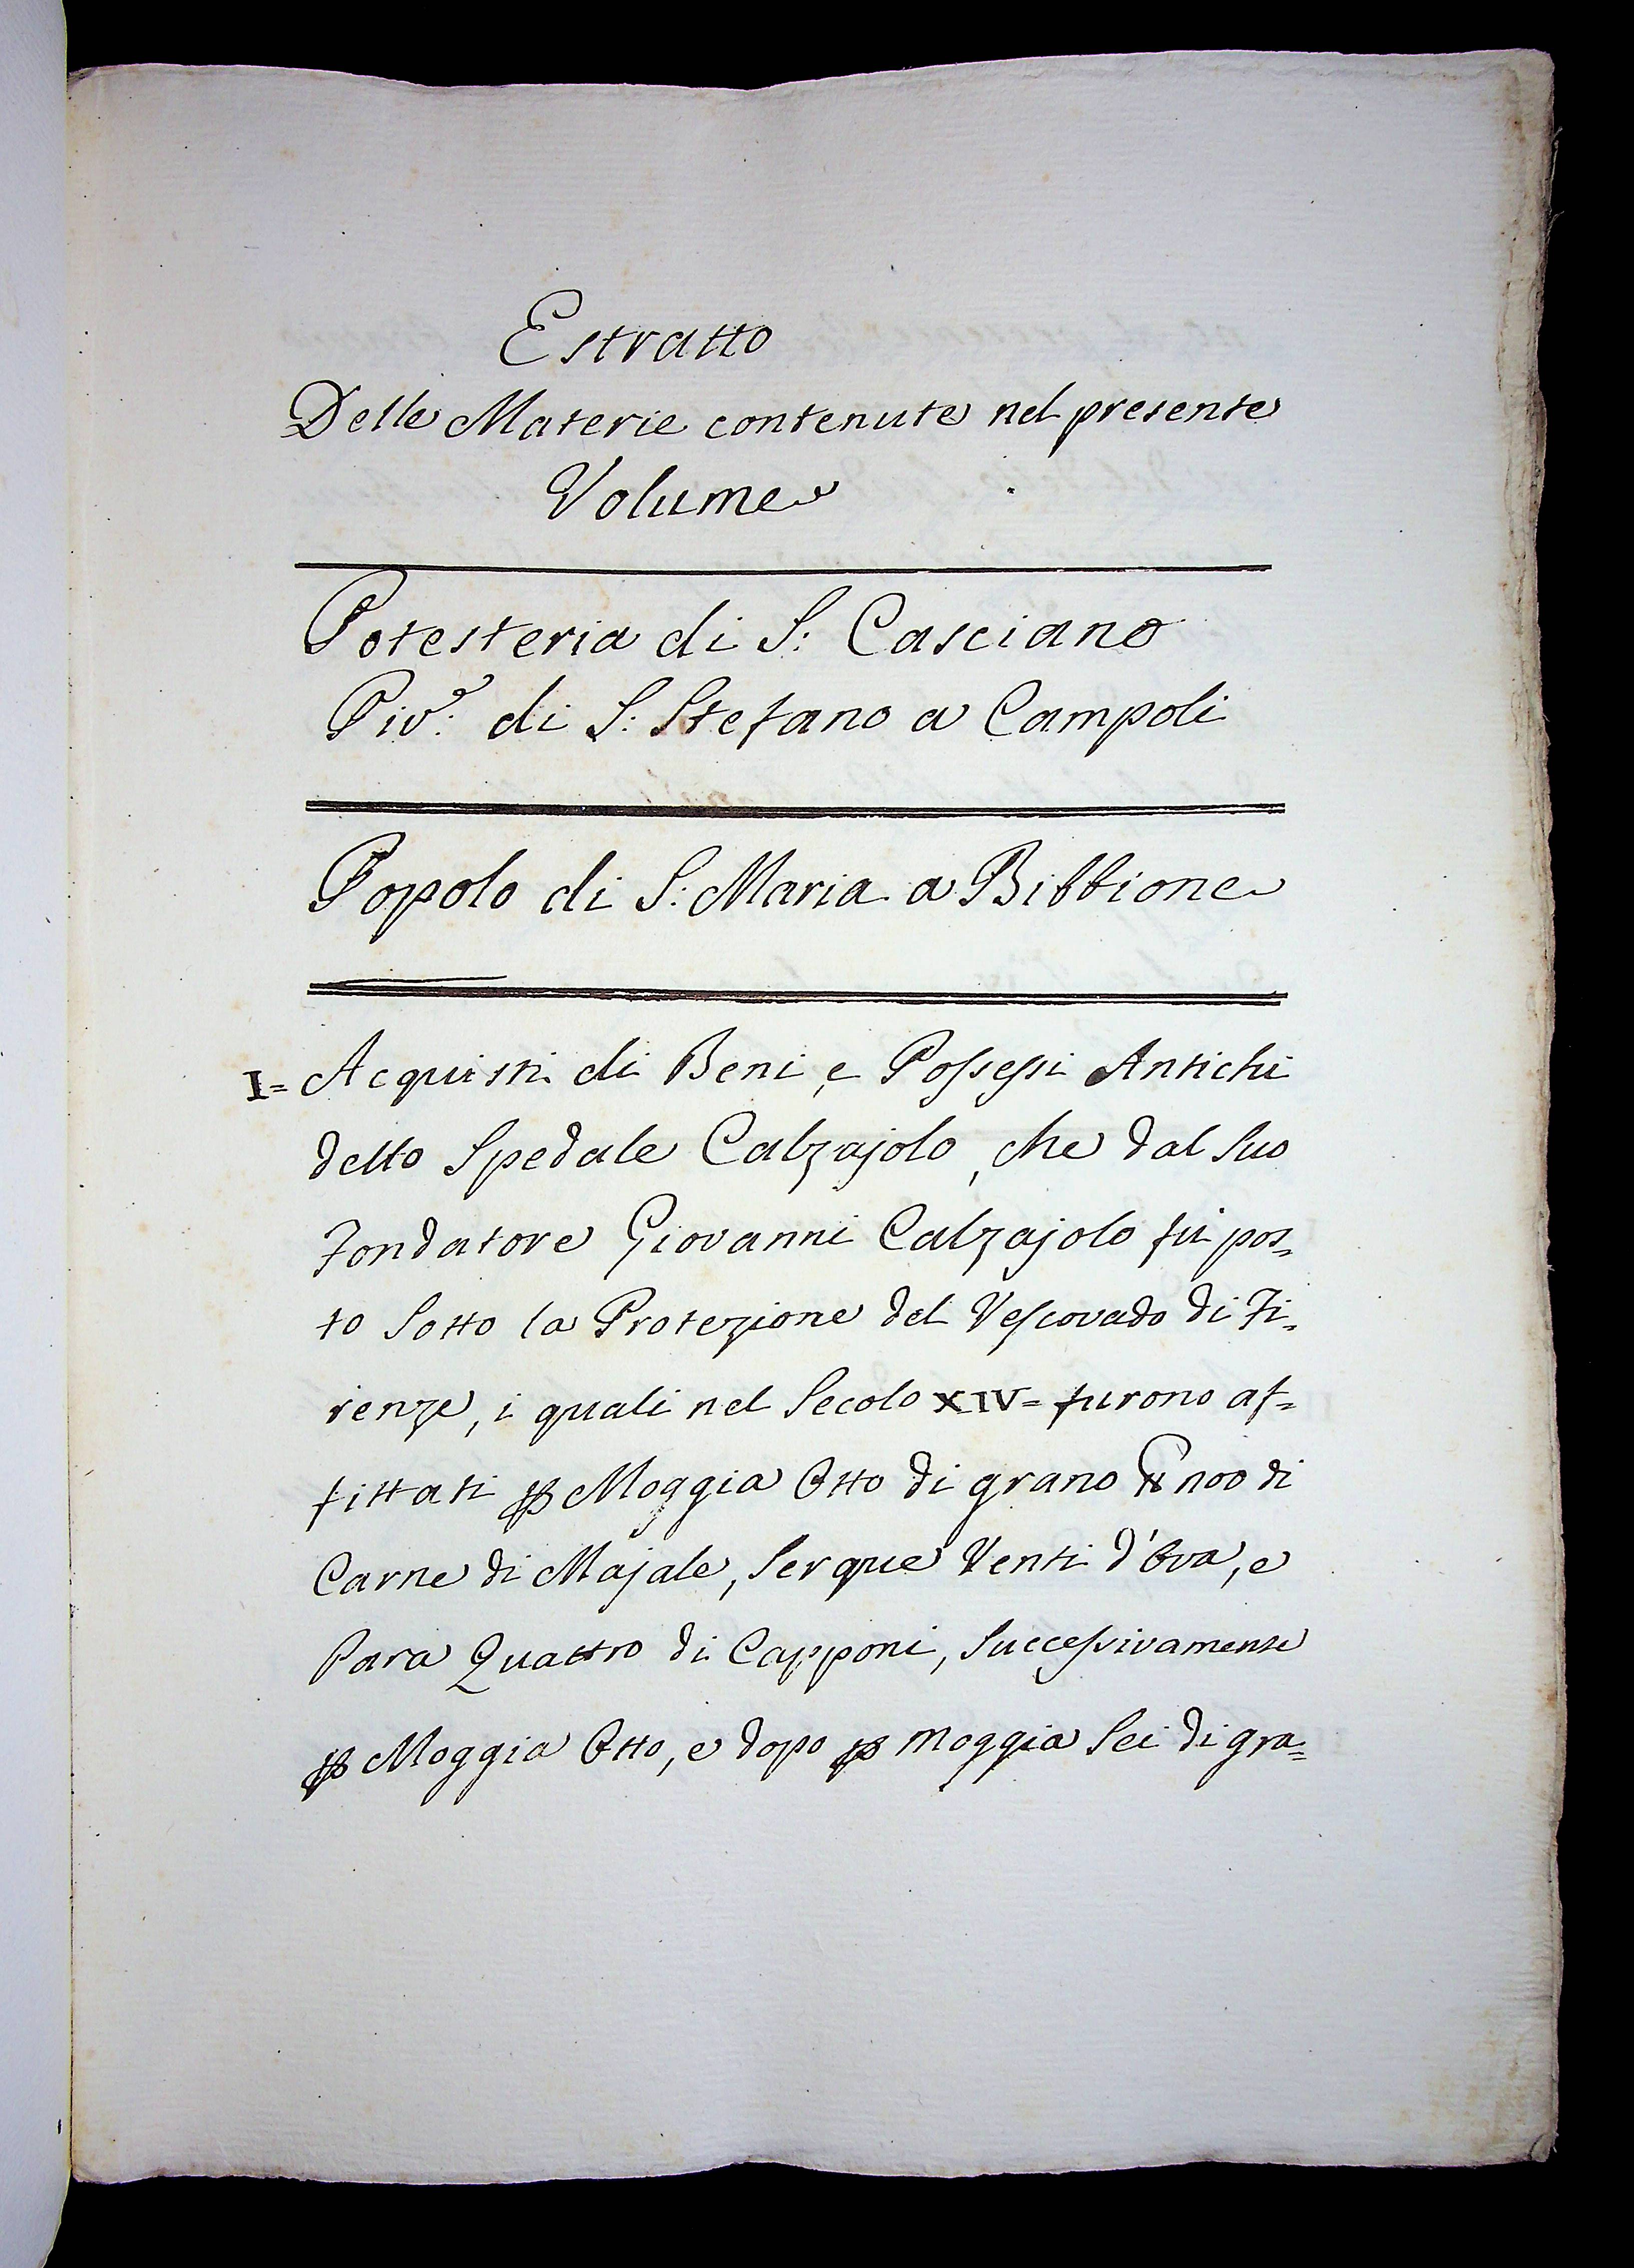 Estratto
Delle Materie contenute nel presente
Volume
Potesteria di S: Casciano
Piv.e di S: Stefano a Campoli
Popolo di S: Maria a Bibbione
I= Acquisti di Beni, e Possessi Antichi
dello Spedale Calzajolo, che dal suo
Fondatore Giovanni Calzajolo fù pos=
to Sotto la Protezione del Vescovado di Fi=
renze, i quali nel Secolo XIV= furono af=
fittati ꝑ Moggia Otto di grano 100 di
Carne di Majale, Serque Venti d'Ova, e
Para Quattro di Capponi, Successivamente
ꝑ Moggia Otto, e dopo ꝑ Moggia Sei di gra=